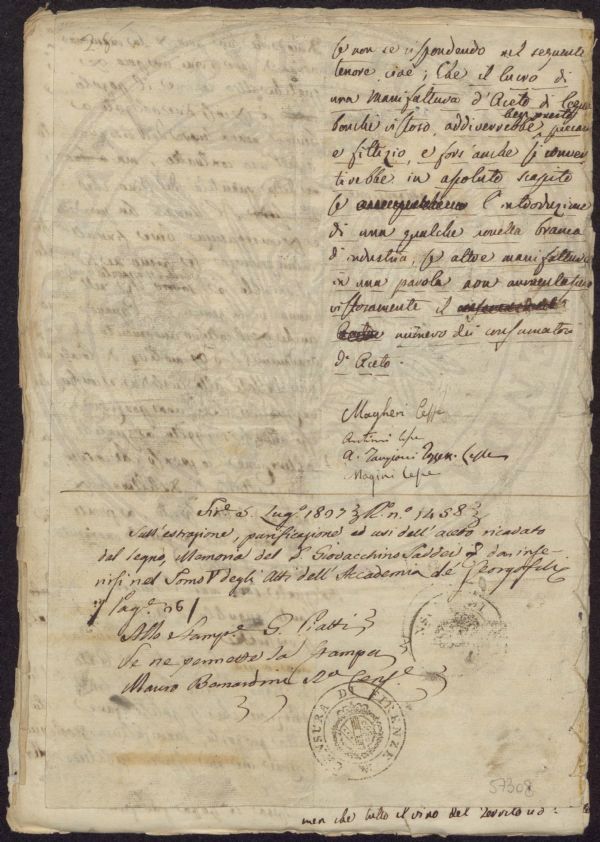 se non se rispondendo nel seguente
tenore, cioè; Che il lucro di
una Manifattura d'Aceto di Legno
ben presto
bonchè vistoso, addiverrebbe precario
e fittizio, e fors'anche si conver
tirebbe in assoluto scapito
se l'introduzione
di una qualche novella branca
d'industria, se altre manifatture
in una parola non aumentassero
vistosamente il
numero dei consumatori
d'Aceto.
Magheri
Antinori
A. Targioni Tozzetti
Magini
5. Lugº 1827 Rº nº 1458
Sull'estrazione, purificazione ed usi dell'aceto ricavato
dal Legno, Memoria del Giovacchino Taddei da inse-
rirsi nel Tomo V degli Atti dell'Accademia de' Georgofili
Pagº 26
Allo Stampe G. Piatti
Se ne permette la Stampa
Mauro Bernardini Rº Cense
CENSURA DI FIRENZE
57308
men che tutto il vino del Territorio